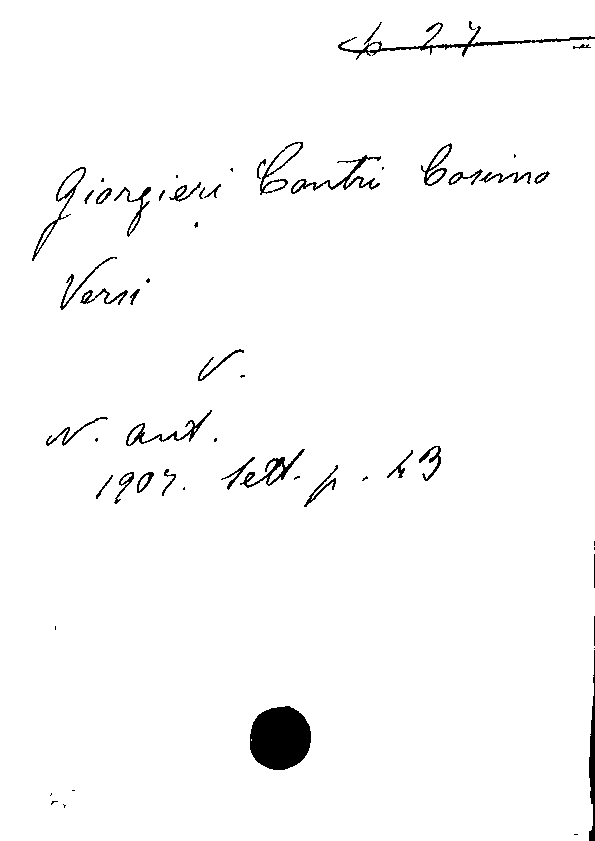 Giorgieri Contri Cosimo
Versi
V.
N. ant.
1907. Sett. p. 43